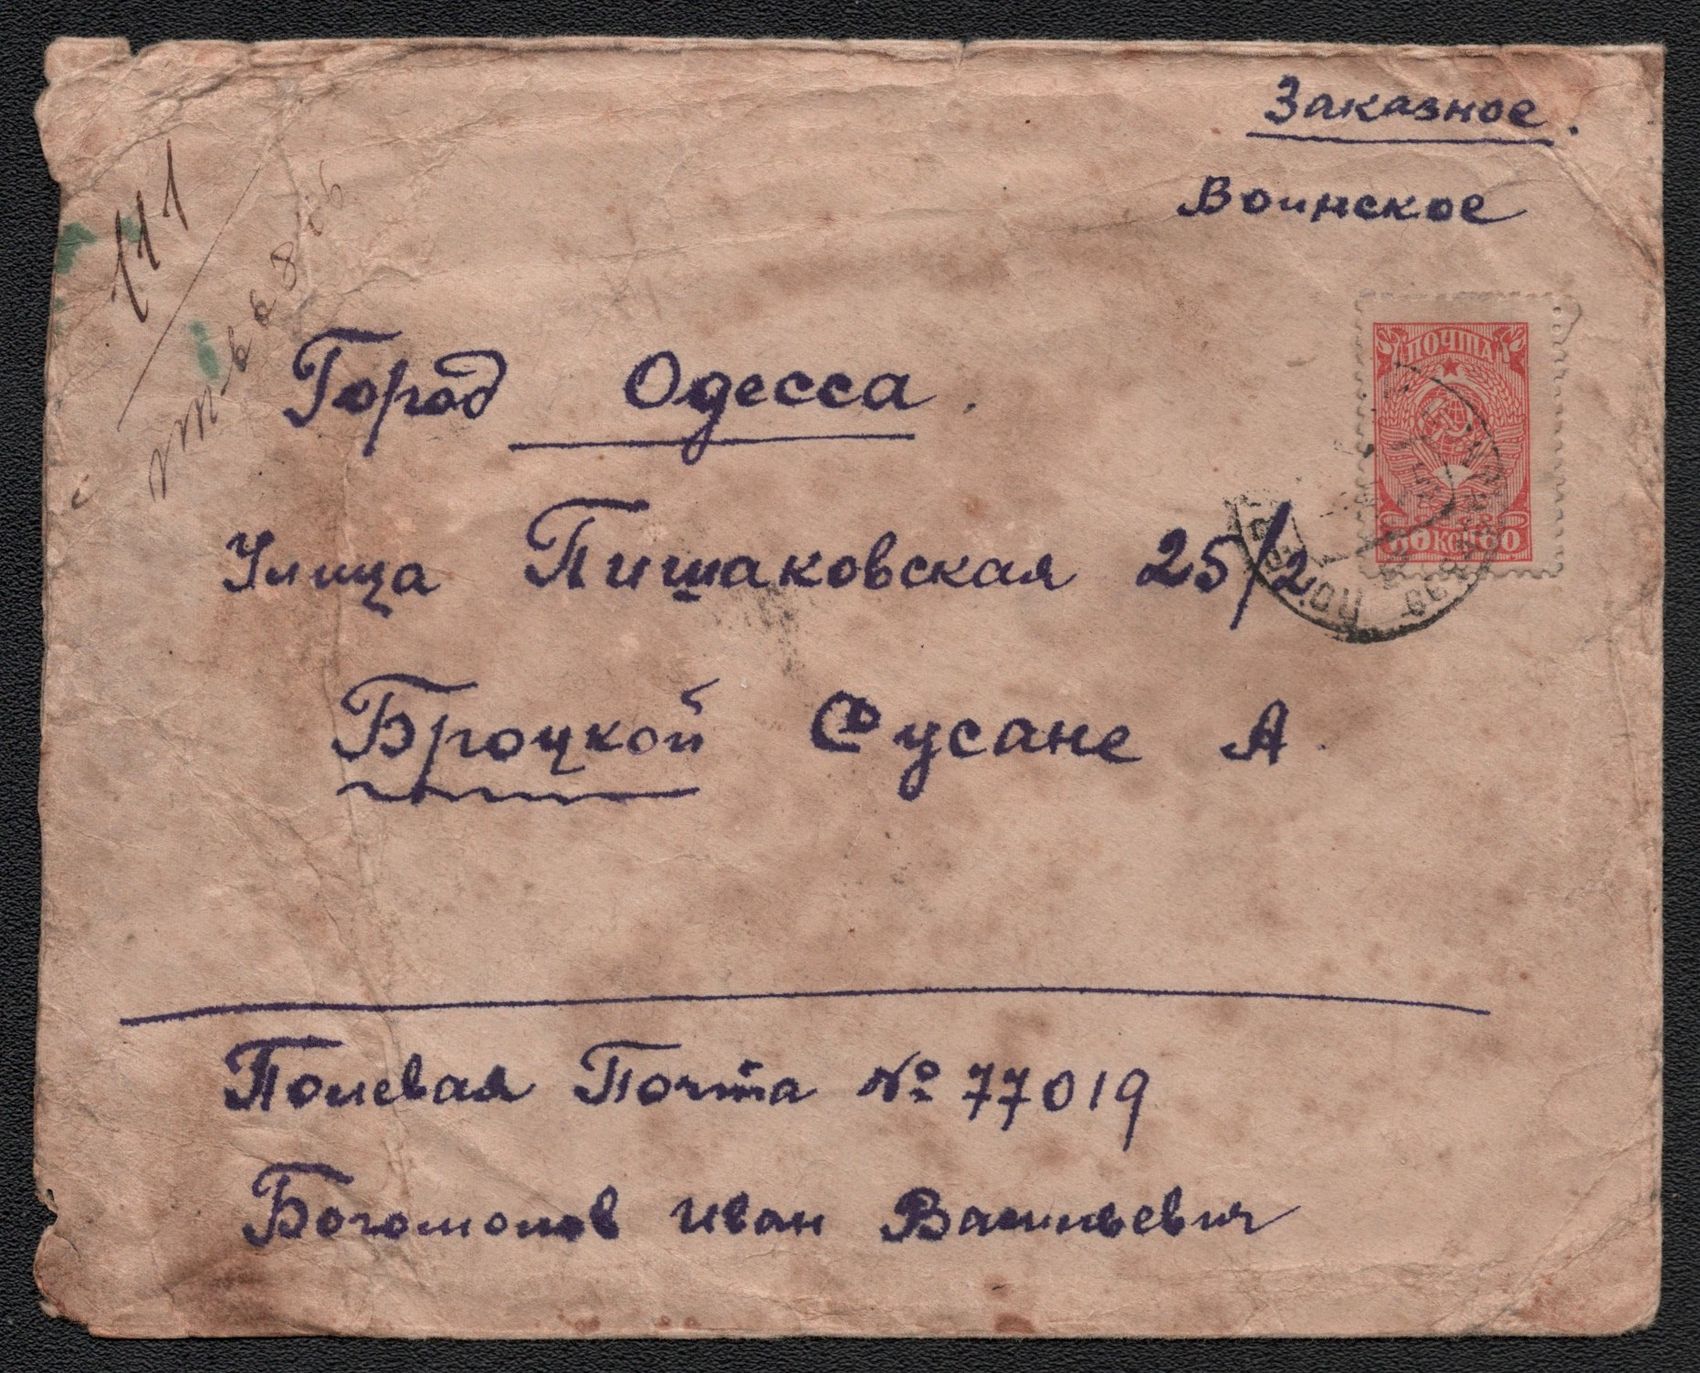 Заказное.
Воинское
111
ПОЧТА
60 КОП 60
Город Одесса.
Улица Пишаковская 25/2
Броцкой Сусане А.
Полевая Почта № 77019
Богомолов Иван Васильевич